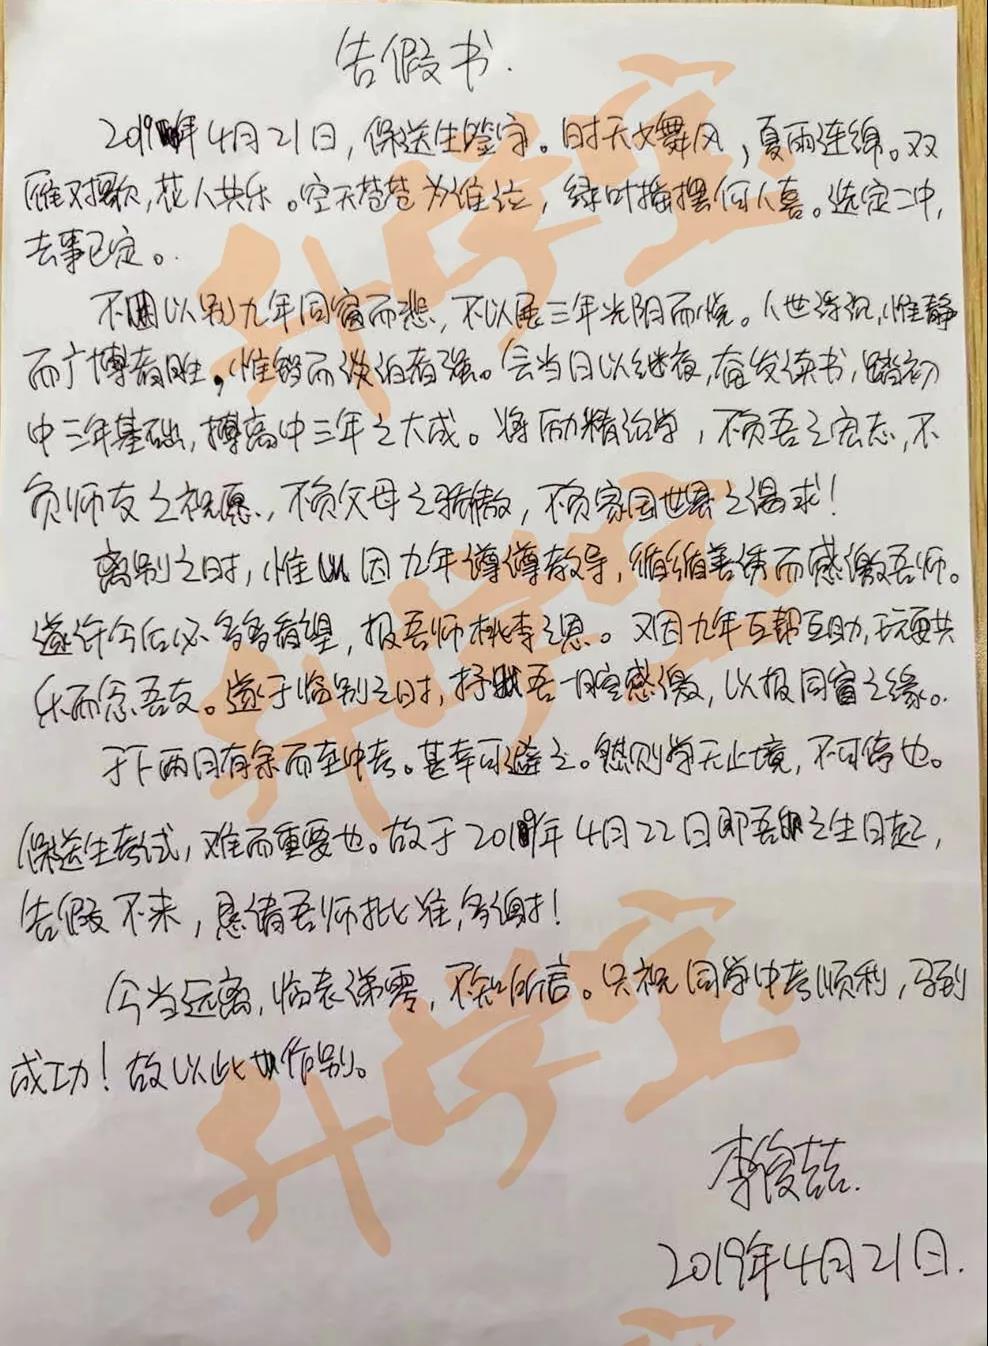 告假书.
2019年4月21日,保送生签字。时天文舞风,夏雨连绵。双
雁对歌,花人共乐。空天苍苍为谁泣,绿叶摇摆何人喜。选定二中,
去事已定。
不以别九年同窗而悲,不以展三年光阴而悦。人世浮沉,惟静
而广博者胜,惟智而淡泊者强。会当日以继夜,奋发读书,踏初
中三年基础,搏高中三年之大成。将励精治学,不负吾之宏志,不
负师友之祝愿,不负父母之骄傲,不负家国世界之渴求!
离别之时,惟因九年谆谆教导,循循善诱而感激吾师。
遂许今后必多多看望,报吾师桃李之恩。又因九年互帮互助,玩耍共
乐而念吾友。遂于临别之时,抒吾一腔感激,以报同窗之缘。
于下两月有余而至中考。甚幸可避之。然则学无止境,不可停也。
保送生考试,难而重要也。故于2019年4月22日即吾之生日起,
告假不来,恳请吾师批准,多谢!
今当远离,临表涕零,不知所言。只祝同学中考顺利,马到
成功!故以此作别。
李俊喆.
2019年4月21日.
升学宝
升学宝
升学宝